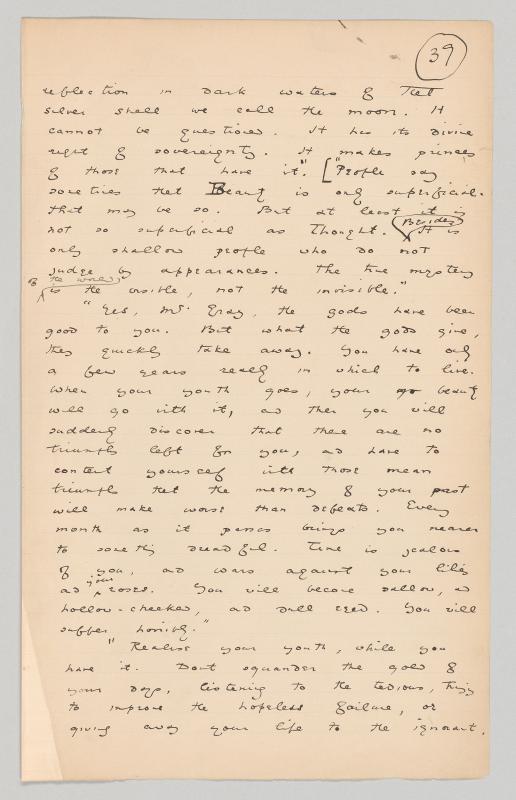 39
reflection in dark waters of that
silver shell we call the moon. It
cannot be questioned. It has its divine
right of sovereignty. It makes princes
of those that have it." ["People say
sometimes that Beauty is only superficial.
That may be so. But at least it is
not so superficial as Thought. Besides It is
only shallow people who do not
judge by appearances. The true mystery
of the world
is the visible, not the invisible."
"Yes, Mr Gray, the gods have been
good to you. But what the gods give,
they quickly take away. You have only
a few years really in which to live.
When your youth goes, your go beauty
will go with it, and then you will
suddenly discover that there are no
triumphs left for you, or have to
content yourself with those mean
triumphs that the memory of your past
will make worse than defeats. Every
month as it passes brings you nearer
to something dreadful. Time is jealous
of you, and wars against your lilies
and your roses. You will become sallow, and
hollow-cheeked, and dull eyed. You will
suffer horribly."
"Realise your youth, while you
have it. Dont squander the gold of
your days, listening to the tedious, trying
to improve the hopeless failure, or
giving away your life to the ignorant.